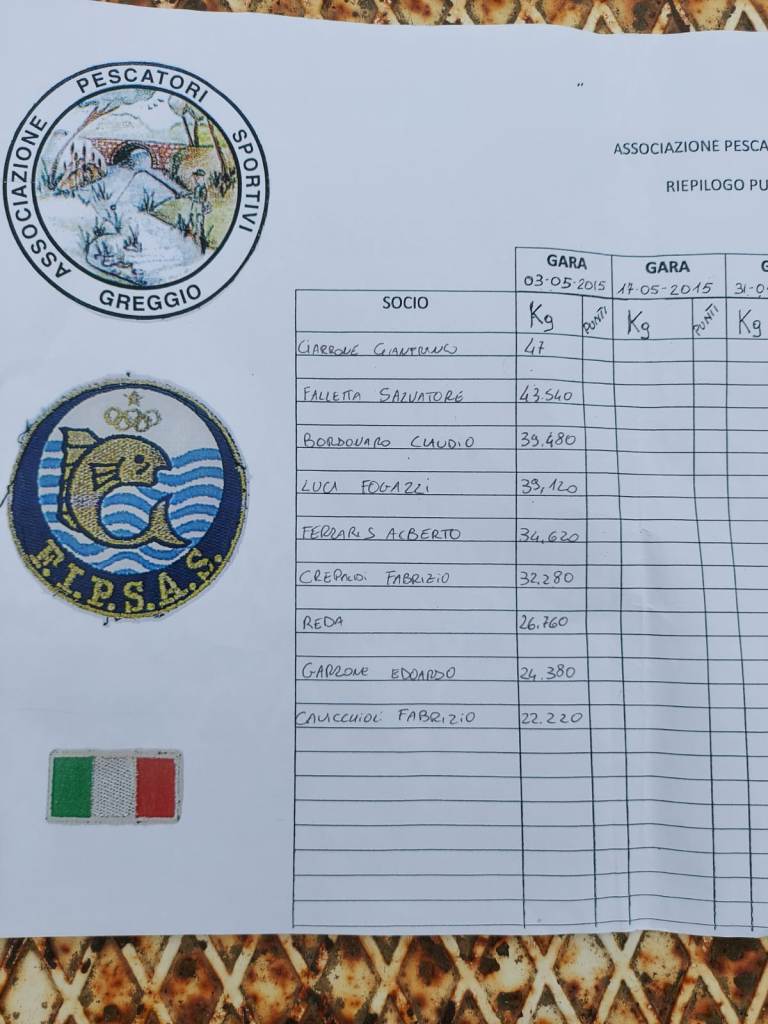 ASSOCIAZIONE PESCATORI SPORTIVI
GREGGIO
ASSOCIAZIONE PESCA
RIEPILOGO PU
GARA GARA G
03-05-2015 17-05-2015 31-0
SOCIO Kg PUNTI Kg PUNTI Kg
GARRONE GIANFRANCO 47
FALLETTA SALVATORE 43.540
BORDONARO CLAUDIO 39.480
LUCA FOGAZZI 39,120
FERRARIS ALBERTO 34.620
CREPALDI FABRIZIO 32.280
REDA 26.760
GARRONE EDOARDO 24.380
CAVICCHIOLI FABRIZIO 22.220
F.I.P.S.A.S.